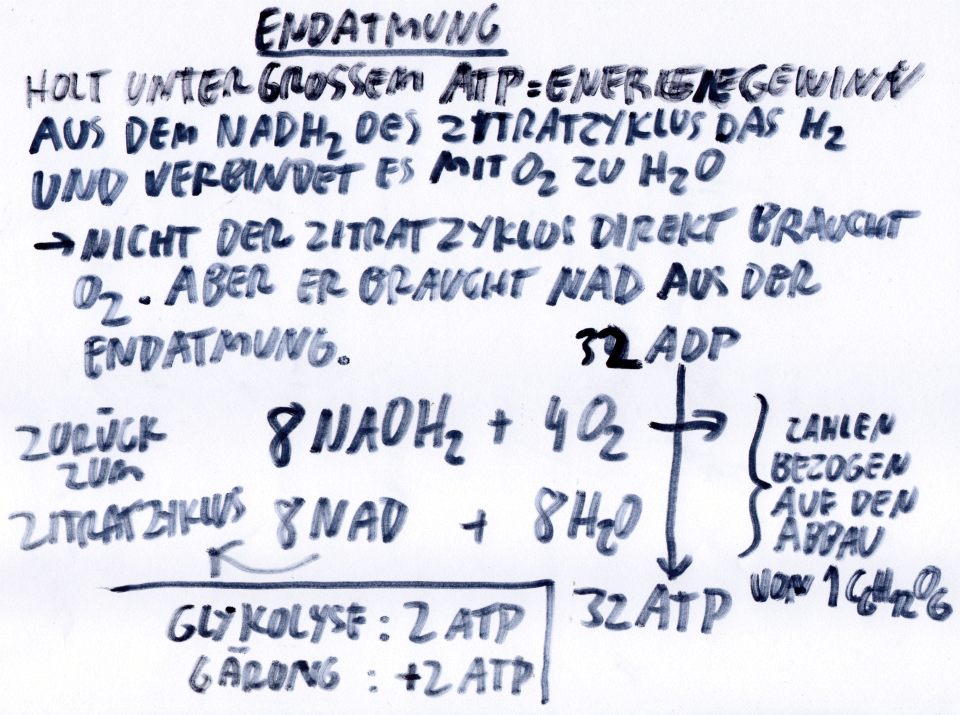 ENDATMUNG
HOLT UNTER GROSSEM ATP=ENERGIEGEWINN
AUS DEM NADH₂ DES ZITRATZYKLUS DAS H₂
UND VERBINDET ES MIT O₂ ZU H₂O
→ NICHT DER ZITRATZYKLUS DIREKT BRAUCHT
O₂. ABER ER BRAUCHT NAD AUS DER
ENDATMUNG.
32 ADP
8 NADH₂ + 4 O₂ →
8 NAD + 8 H₂O
32 ATP
ZURÜCK
ZUM
ZITRATZYKLUS
ZAHLEN
BEZOGEN
AUF DEN
ABBAU
VON 1 C₆H₁₂O₆
GLYKOLYSE: 2 ATP
GÄRUNG : +2 ATP